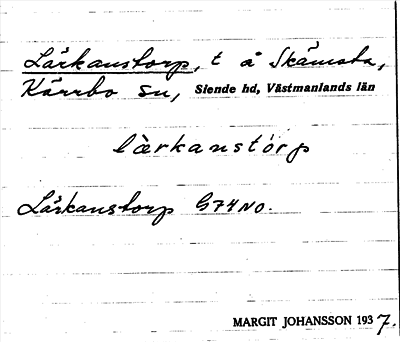 Lärkanstorp, t å Skämsta,
Kärrbo sn, Siende hd, Västmanlands län
làrkanstórp
Lärkanstorp G74NO.
MARGIT JOHANSSON 1937.